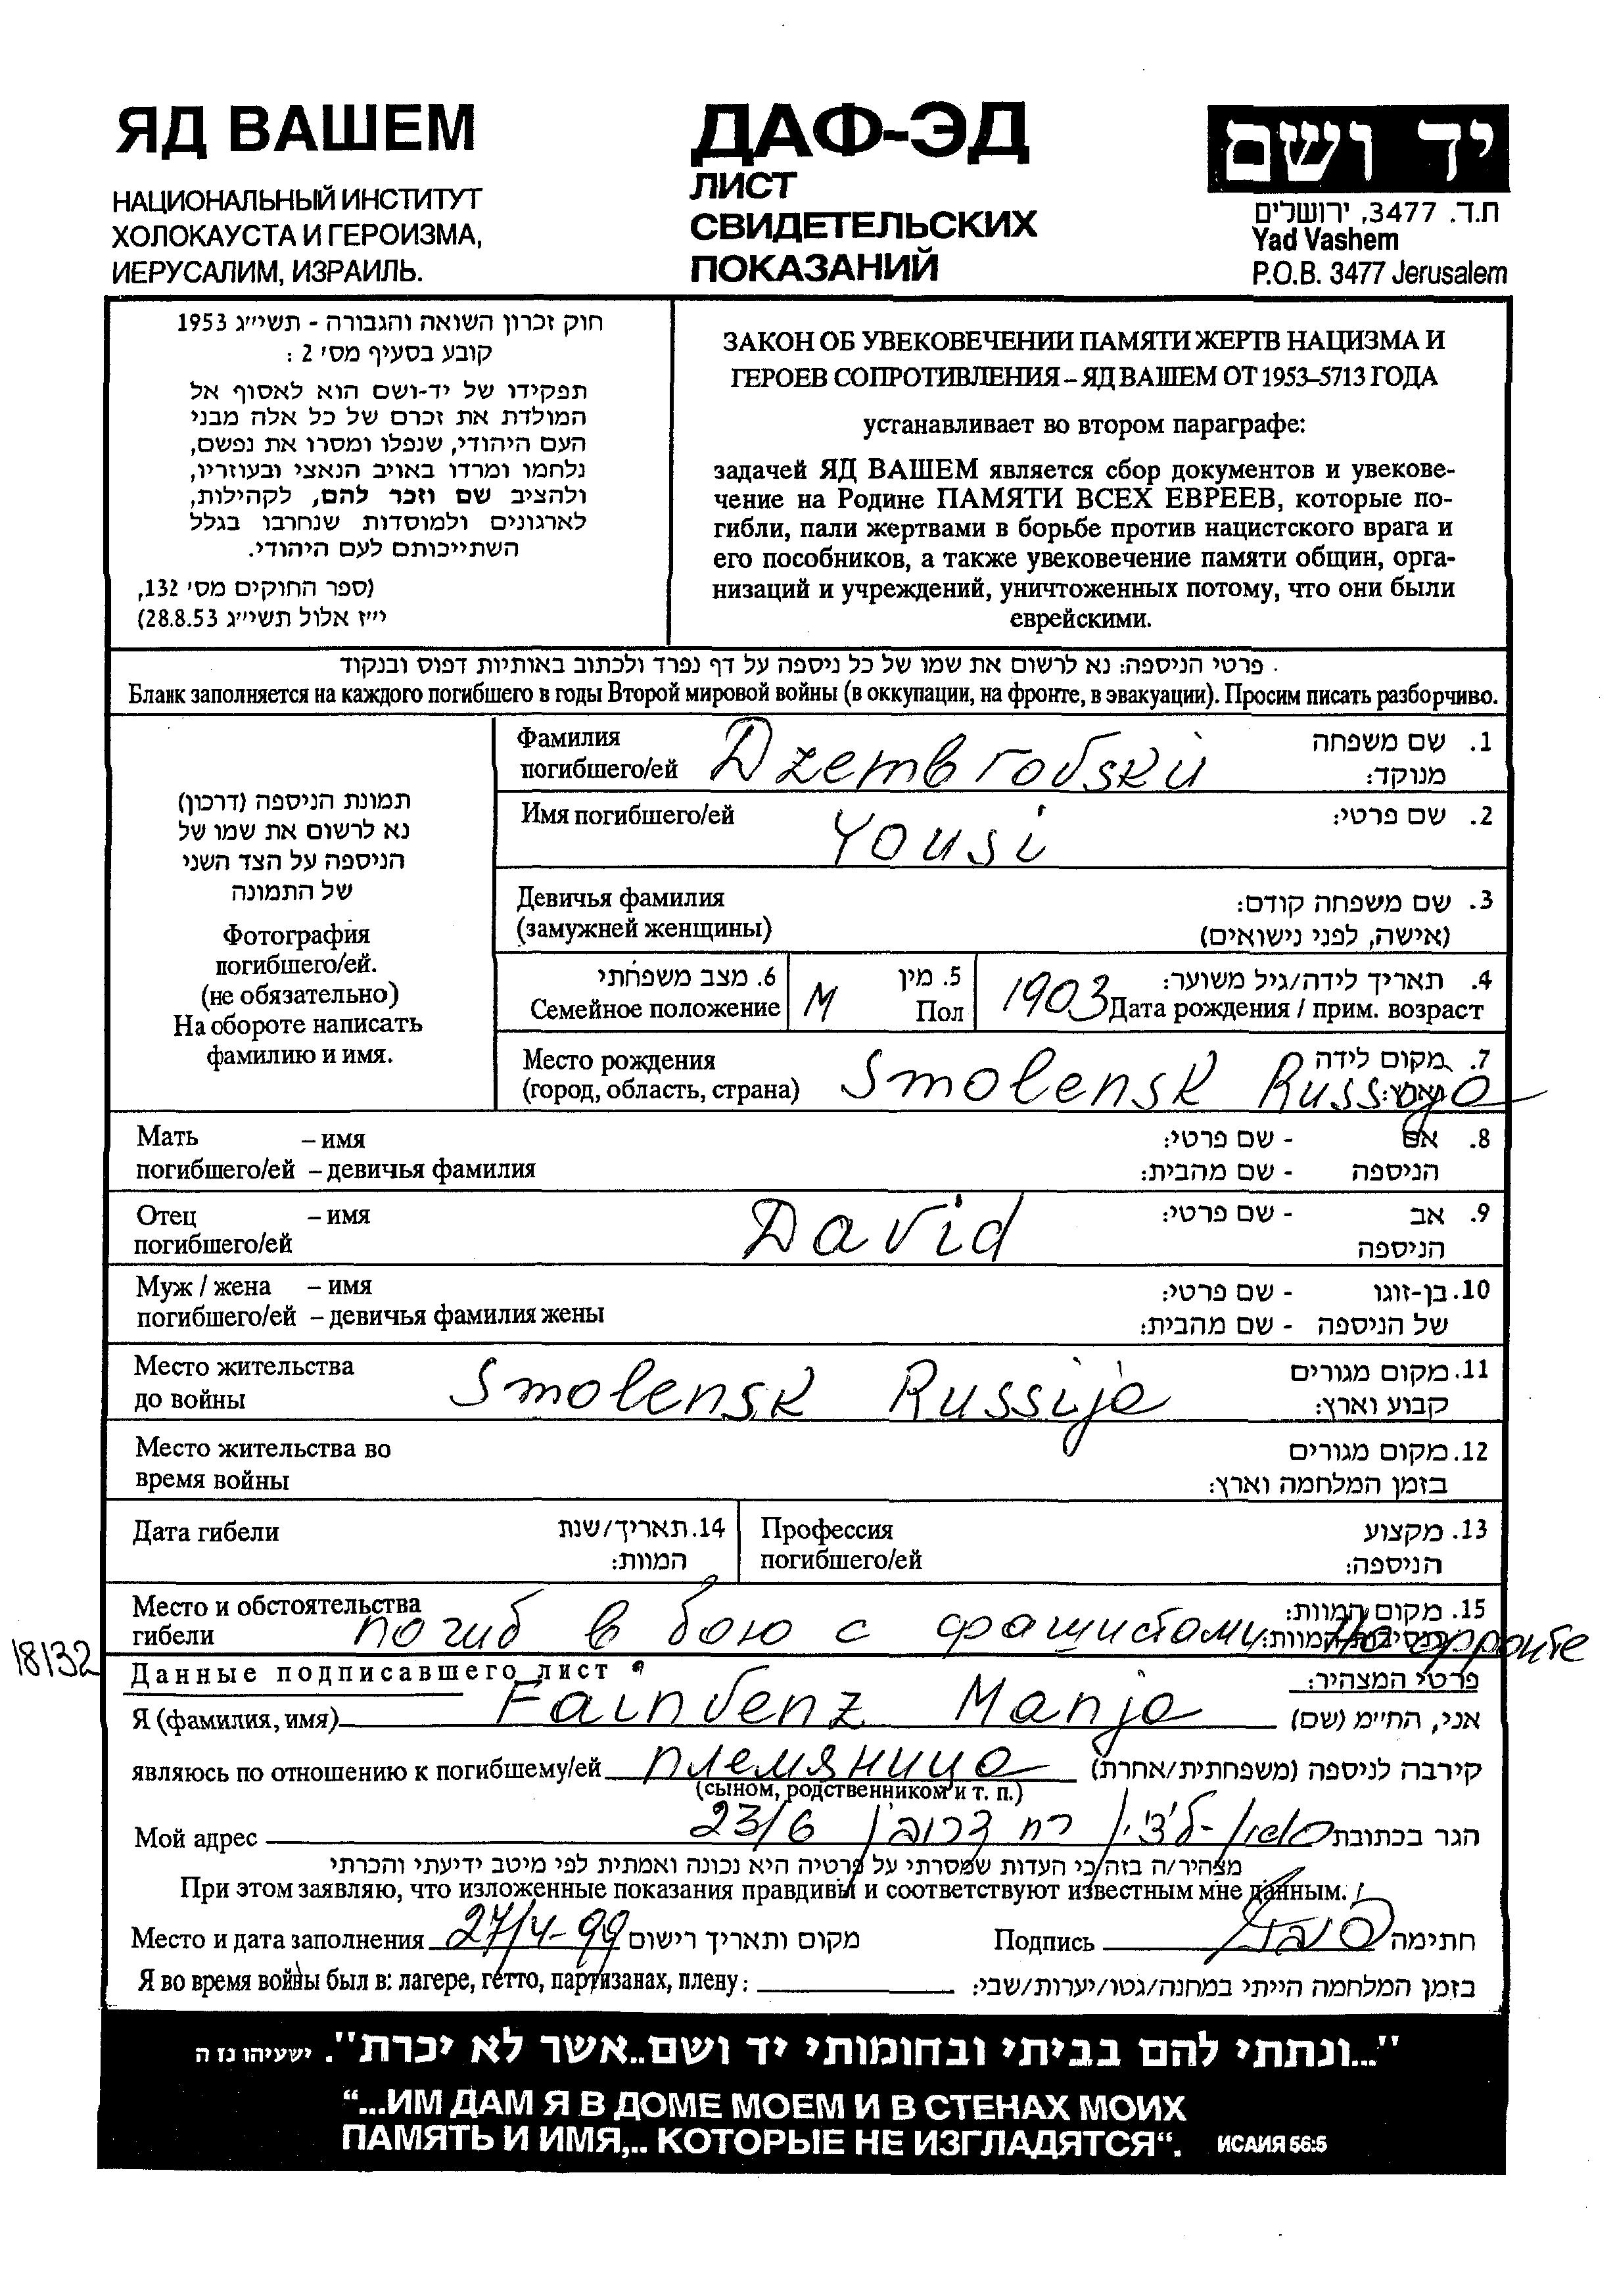 ЯД ВАШЕМ
НАЦИОНАЛЬНЫЙ ИНСТИТУТ
ХОЛОКАУСТА И ГЕРОИЗМА,
ИЕРУСАЛИМ, ИЗРАИЛЬ.
ДАФ-ЭД
ЛИСТ
СВИДЕТЕЛЬСКИХ
ПОКАЗАНИЙ
יד ושם
ת.ד. 3477, ירושלים
Yad Vashem
P.O.B. 3477 Jerusalem
חוק זכרון השואה והגבורה - תשי״ג 1953
קובע בסעיף מס׳ 2 :
תפקידו של יד-ושם הוא לאסוף אל
המולדת את זכרם של כל אלה מבני
העם היהודי, שנפלו ומסרו את נפשם,
נלחמו ומרדו באויב הנאצי ובעוזריו,
ולהציב שם וזכר להם, לקהילות,
לארגונים ולמוסדות שנחרבו בגלל
השתייכותם לעם היהודי.
(ספר החוקים מס׳ 132,
י״ז אלול תשי״ג 28.8.53)
ЗАКОН ОБ УВЕКОВЕЧЕНИИ ПАМЯТИ ЖЕРТВ НАЦИЗМА И
ГЕРОЕВ СОПРОТИВЛЕНИЯ – ЯД ВАШЕМ ОТ 1953–5713 ГОДА
устанавливает во втором параграфе:
задачей ЯД ВАШЕМ является сбор документов и увекове-
чение на Родине ПАМЯТИ ВСЕХ ЕВРЕЕВ, которые по-
гибли, пали жертвами в борьбе против нацистского врага и
его пособников, а также увековечение памяти общин, орга-
низаций и учреждений, уничтоженных потому, что они были
еврейскими.
פרטי הניספה: נא לרשום את שמו של כל ניספה על דף נפרד ולכתוב באותיות דפוס ובנקוד
Бланк заполняется на каждого погибшего в годы Второй мировой войны (в оккупации, на фронте, в эвакуации). Просим писать разборчиво.
תמונת הניספה (דרכון)
נא לרשום את שמו של
הניספה על הצד השני
של התמונה
Фотография
погибшего/ей.
(не обязательно)
На обороте написать
фамилию и имя.
Фамилия Dzembrovski 1. שם משפחה
погибшего/ей מנוקד:
Имя погибшего/ей Yousi 2. שם פרטי:
Девичья фамилия 3. שם משפחה קודם:
(замужней женщины) (אישה, לפני נישואים)
6. מצב משפחתי M 5. מין 1903 4. תאריך לידה/גיל משוער:
Семейное положение Пол Дата рождения / прим. возраст
Место рождения 7. מקום לידה
(город, область, страна) Smolensk Russija וארץ:
Мать – имя - שם פרטי: 8. אם
погибшего/ей – девичья фамилия - שם מהבית: הניספה
Отец – имя David - שם פרטי: 9. אב
погибшего/ей הניספה
Муж / жена – имя - שם פרטי: 10. בן-זוגו
погибшего/ей – девичья фамилия жены - שם מהבית: של הניספה
Место жительства 11. מקום מגורים
до войны Smolensk Russija קבוע וארץ:
Место жительства во 12. מקום מגורים
время войны בזמן המלחמה וארץ:
Дата гибели 14. תאריך/שנת Профессия 13. מקצוע
המוות: погибшего/ей הניספה:
Место и обстоятельства 15. מקום המוות:
гибели погиб в бою с фашистами На фронте
18132
Данные подписавшего лист פרטי המצהיר:
Я (фамилия, имя) Fainvenz Manja אני, החי״מ (שם)
являюсь по отношению к погибшему/ей племяница קירבה לניספה (משפחתית/אחרת)
(сыном, родственником и т. п.)
Мой адрес 23/6 הגר בכתובת
מצהיר/ה בזה כי העדות שמסרתי על פרטיה היא נכונה ואמתית לפי מיטב ידיעתי והכרתי
При этом заявляю, что изложенные показания правдивы и соответствуют известным мне данным.
Место и дата заполнения 27/4-99 מקום ותאריך רישום Подпись חתימה
Я во время войны был в: лагере, гетто, партизанах, плену: בזמן המלחמה הייתי במחנה/גטו/יערות/שבי:
"...ונתתי להם בביתי ובחומותי יד ושם..אשר לא יכרת". ישעיהו נז ה
“...ИМ ДАМ Я В ДОМЕ МОЕМ И В СТЕНАХ МОИХ
ПАМЯТЬ И ИМЯ,.. КОТОРЫЕ НЕ ИЗГЛАДЯТСЯ“. ИСАИЯ 56:5